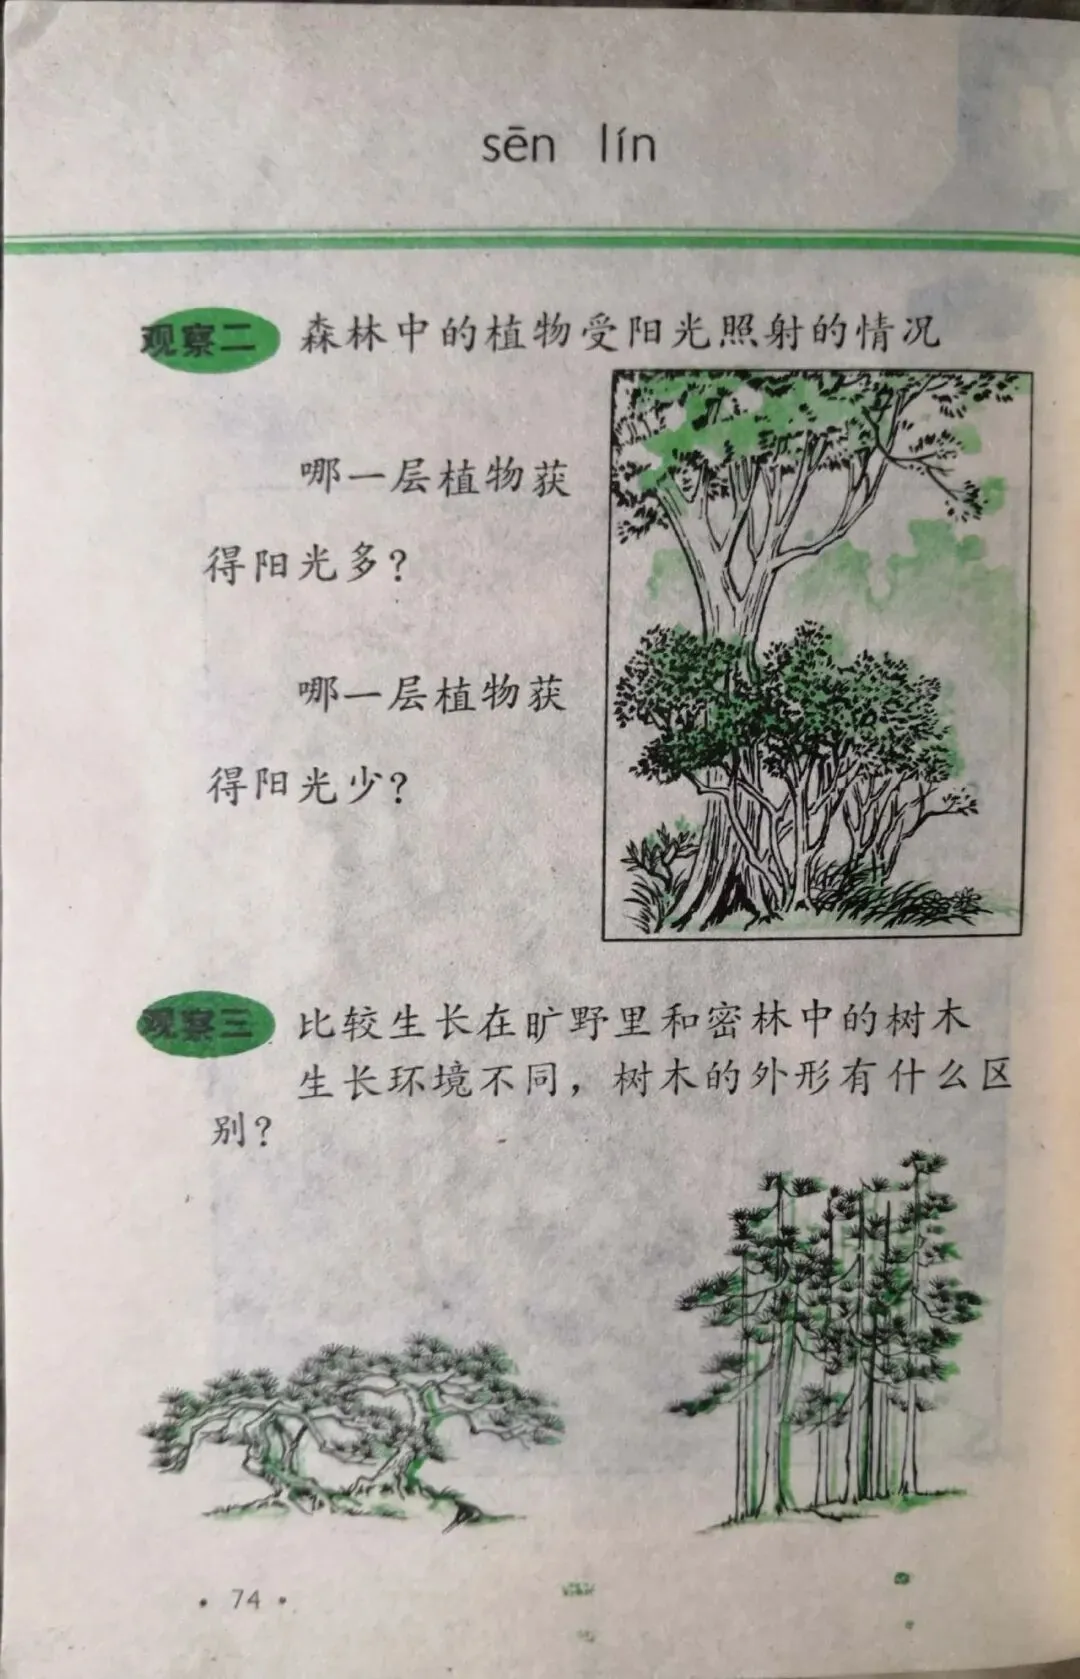 sēn lín
观察二 森林中的植物受阳光照射的情况
哪一层植物获
得阳光多？
哪一层植物获
得阳光少？
观察三 比较生长在旷野里和密林中的树木
生长环境不同，树木的外形有什么区
别？
· 74 ·